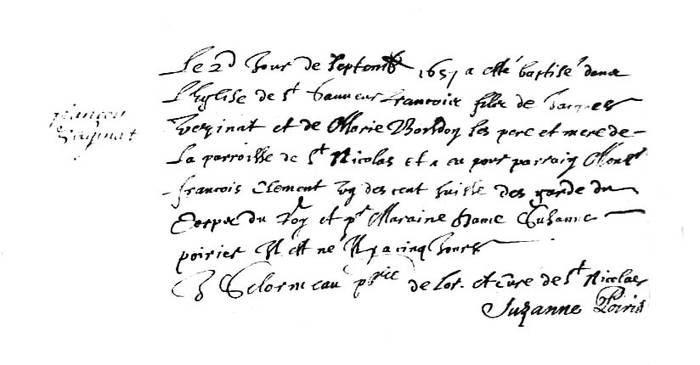 françois
Le 2d Jour de Septemb 1657 a esté baptisé dans
L'Eglise de St Sauveur francois filz de Jacques
Verginat et de Marie Bourdon les pere et mere de
La parroisse de St Nicolas et a eu pour parrain Monsr
francois Clement Un des cent suisse des garde du
Corps du Roy et pr Maraine dame Suzanne
poirier Il est né Il y a cinq Jours
de Lor. et Cure de St Nicolas
Suzanne Poirie